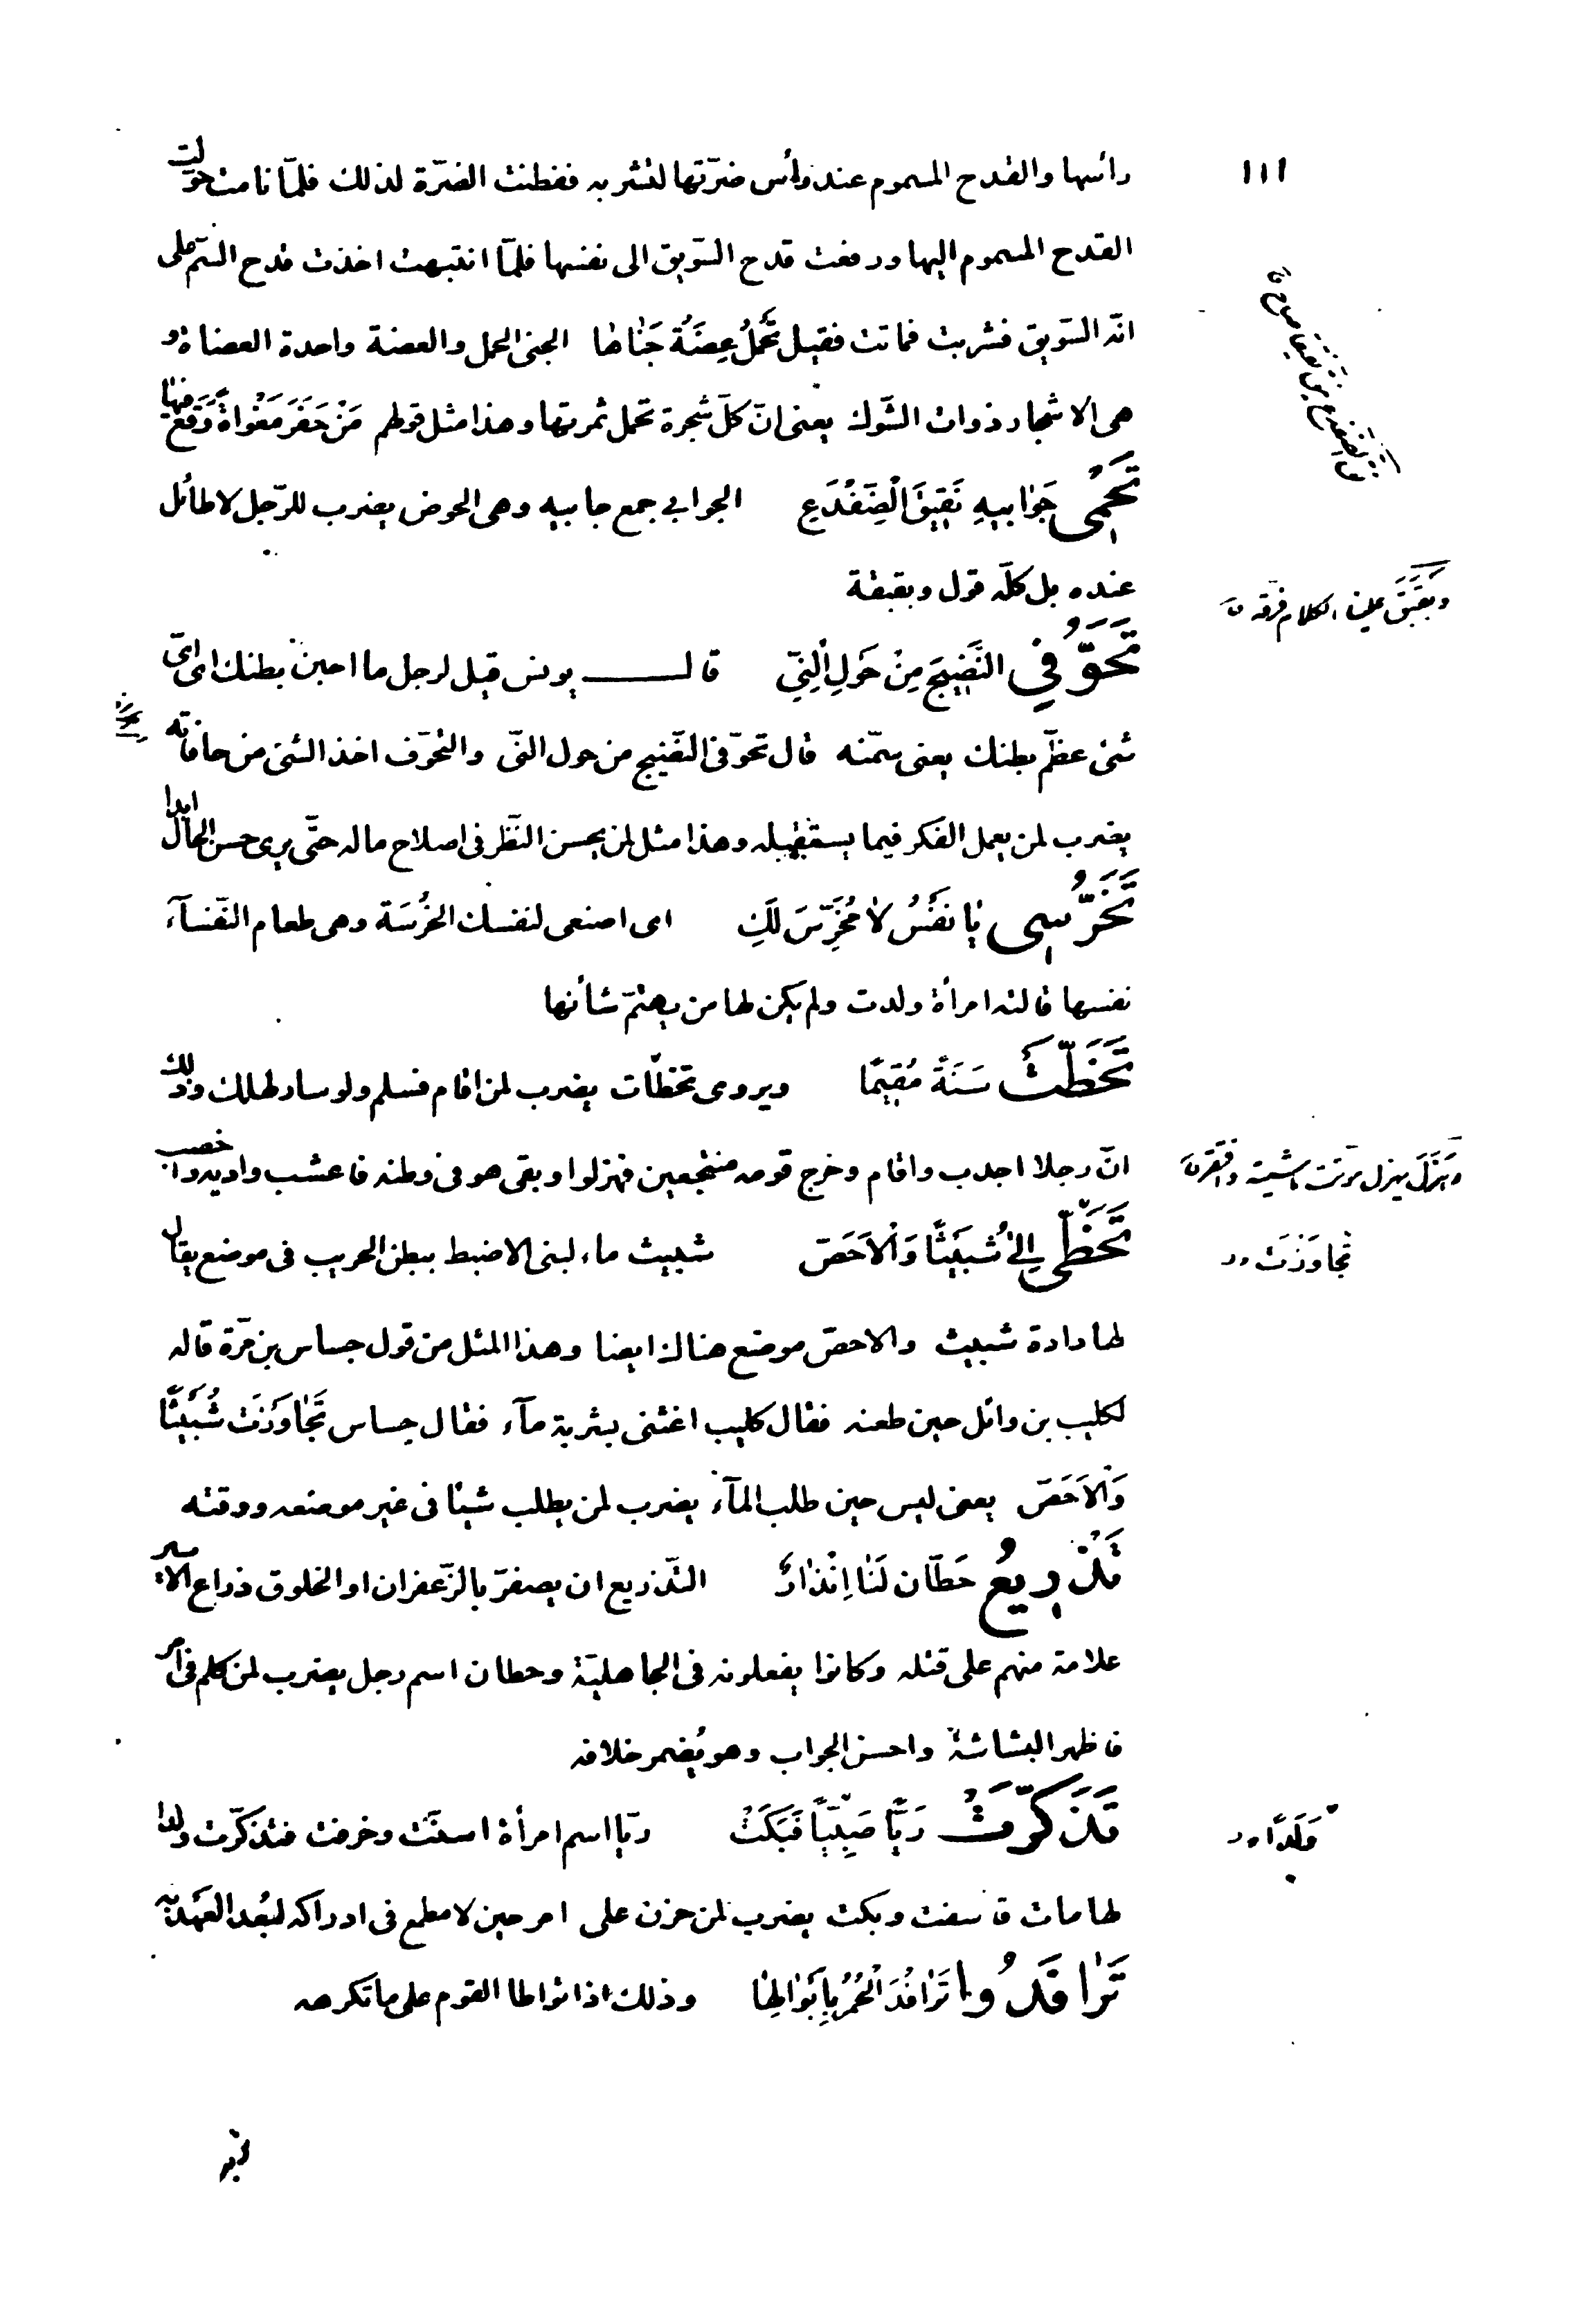 ١١١
رأسها والقدح المسموم عند رأس ضرّتها لتشربه ففطنت الضرّة لذلك فلمّا نامت حوّلت
القدح المسموم اليها ورفعت قدح السّويق الى نفسها فلمّا انتبهت اخذت قدح السّم على
انّه السّويق فشربت فماتت فقيل تَحْمِلُ عِضَةٌ جَنَاهَا الجنى الحمل والعضة واحدة العضاة و
هى الاشجار ذوات الشّوك يعنى انّ كلّ شجرة تحمل ثمرتها وهذا مثل قولهم مَنْ حَفَرَ مَغْوَاةً وَقَعَ فيها
تَحْمِى جَوَابيهِ نَقِيقَ الْضِفْدَعِ الجوابي جمع جابيه وهى الحوض يضرب للرّجل لا طائل
عنده بل كلّه قول وبقبقة
وبَقْبَقَ علينا الكلام فرّقه ق
تَحَوَّفي النَّضِيجَ مِنْ حَولِ الْنِيّ قال يونس قيل لرجل ما احبن بطنك اى اىّ
شئ عظّم بطنك يعنى سمّنه قال تحوّفى النّضيج من حول النّى والتحوّف اخذ الشئ من حافاته
يضرب لمن يعمل الفكر فيما يستقبله وهذا مثل لمن يحسن النّظر فى اصلاح ماله حتّى يرى حسن الحال ابدا
تَخَرَّسِى يَا نَفْسُ لاٰ مُخَرِّسَ لَكِ اى اصنعى لنفسك الخُرْسَة وهى طعام النّفسآء
نفسها قالته امرأة ولدت ولم يكن لها من يهتمّ شأنها
تَخَطَّتْ سَنَةً مُقِيمًا ويروى تخطّات يضرب لمن اقام فسلم ولو سار لهلك وذلك
انّ رجلا اجدب واقام وخرج قومه منتجعين فهزلوا وبقى هو فى وطنه فاعشب واديه واخصب
وهَزَلَ يهزل موتت ماشيته وافتقر ق
تَخَطّى اِلىٰ شُبَيْثًا وَالْاَحَصّ شبيث ماء لبنى الاضبط ببطن الحريب فى موضع يقال
تَجاوَزْتَ
لها دارة شبيث والاحصّ موضع هناك ايضا وهذا المثل من قول جساس بن مرّة قاله
لكليب بن وائل حين طعنه فقال كليب اغثنى بشربة مآء فقال جساس تَجَاوَزْتَ شُبَيْثًا
وَالْاَحَصّ يعنى ليس حين طلب المآء يضرب لمن يطلب شيئا فى غير موضعه ووقته
تَذْرِيعُ حَطّان لَنٰا اِنْذٰارٌ التّذريع ان يصفرّ بالزّعفران او الخلوق ذراع الاسير
علامة منهم على قتله وكانوا يفعلونه فى الجاهليّة وحطان اسم رجل يضرب لمن كلم فى امر
فاظهر البشاشة واحسن الجواب وهو يُضمر خلافه
تَذَكَّرَتْ رَيَّا صَبِيًّا فَبَكَتْ ريّا اسم امرأة اسنّت وخرفت فتذكّرت ولدا
وَلَدًا
لها مات فاسفت وبكت يضرب لمن حزن على امر حين لا مطمع فى ادراكه لبُعد العَهْد به
تَرٰافَدُوا تَرٰافُدَ الْحُمُرِ بِاَبْوٰالِهٰا وذلك اذا تواطا القوم على ما تكرهه